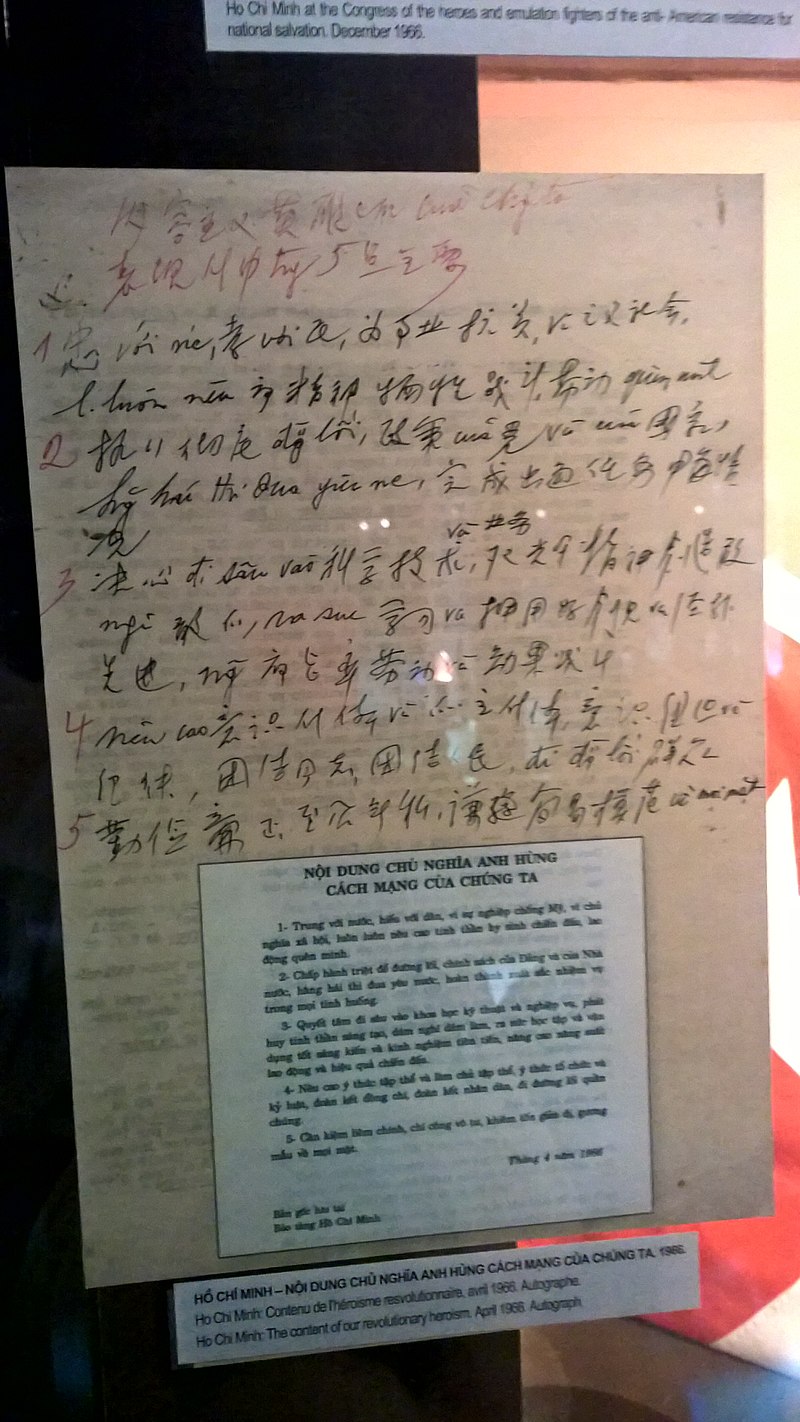 Ho Chi Minh at the Congress of the heroes and emulation fighters of the anti- American resistance for
national salvation. December 1966.
容主义英雄 chúng ta
表现 5 点主要
1 忠 với nc, 孝 với 民, 为事业抗美, vì 主义社会,
luôn luôn nêu 高精神牺牲战斗, 劳动 quên mình
2 执行彻底 đg lối, 政策 của 党 và của 国家,
hăng hái thi đua yêu nc, 完成出色任务
况
và 业务
3 决心 đi sâu vào 科学技术,
nghĩ 敢 ra sức 学习 và 押用
先进, 劳动 và 效果战斗
4 nêu cao 意识 và 意识
纪律, 团结同志, 团结 đi đg lối
5 勤俭廉正, 至公无私, 模范 về mọi mặt
NỘI DUNG CHỦ NGHĨA ANH HÙNG
CÁCH MẠNG CỦA CHÚNG TA
1- Trung với nước, hiếu với dân, vì sự nghiệp chống Mỹ, vì chủ
nghĩa xã hội, luôn luôn nêu cao tinh thần hy sinh chiến đấu, lao
động quên mình.
2- Chấp hành triệt để đường lối, chính sách của Đảng và của Nhà
nước, hăng hái thi đua yêu nước, hoàn thành xuất sắc nhiệm vụ
trong mọi tình huống.
3- Quyết tâm đi sâu vào khoa học kỹ thuật và nghiệp vụ, phát
huy tinh thần sáng tạo, dám nghĩ dám làm, ra sức học tập và vận
dụng tốt sáng kiến và kinh nghiệm tiên tiến, nâng cao năng suất
lao động và hiệu quả chiến đấu.
4- Nêu cao ý thức tập thể và làm chủ tập thể, ý thức tổ chức và
kỷ luật, đoàn kết đồng chí, đoàn kết nhân dân, đi đường lối quần
chúng.
5- Cần kiệm liêm chính, chí công vô tư, khiêm tốn giản dị, gương
mẫu về mọi mặt.
Tháng 4 năm 1966
Bản gốc lưu tại
Bảo tàng Hồ Chí Minh
HỒ CHÍ MINH – NỘI DUNG CHỦ NGHĨA ANH HÙNG CÁCH MẠNG CỦA CHÚNG TA, 1966.
Ho Chi Minh: Contenu de l'héroïsme resvolutionnaire, avril 1966. Autographe.
Ho Chi Minh: The content of our revolutionary heroism. April 1966. Autograph